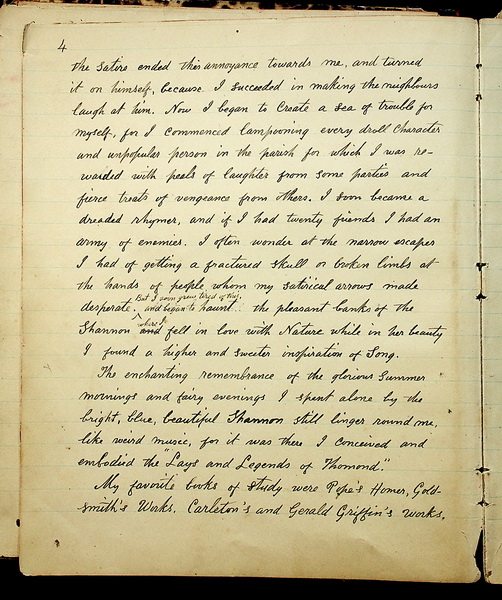 4
the satire ended this annoyance towards me, and turned
it on himself, because I succeeded in making the neighbours
laugh at him. Now I began to create a sea of trouble for
myself, for I commenced lampooning every droll character
and unpopular person in the parish for which I was re-
warded with peels of laughter from some parties and
fierce treats of vengeance from others. I soon became a
dreaded rhymer, and if I had twenty friends I had an
army of enemies. I often wonder at the narrow escapes
I had of getting a fractured skull or broken limbs at
the hands of people whom my satirical arrows made
But I soon grew tired of this,
desperate. and began to haunt the pleasant banks of the
where I
Shannon and fell in love with Nature while in her beauty
I found a higher and sweeter inspiration of Song.
The enchanting remembrance of the glorious Summer
mornings and fairy evenings I spent alone by the
bright, blue, beautiful Shannon still linger round me,
like weird music, for it was there I conceived and
embodied the "Lays and Legends of Thomond."
My favorite books of study were Pope's Homer, Gold-
smith's Works. Carleton's and Gerald Griffin's Works.